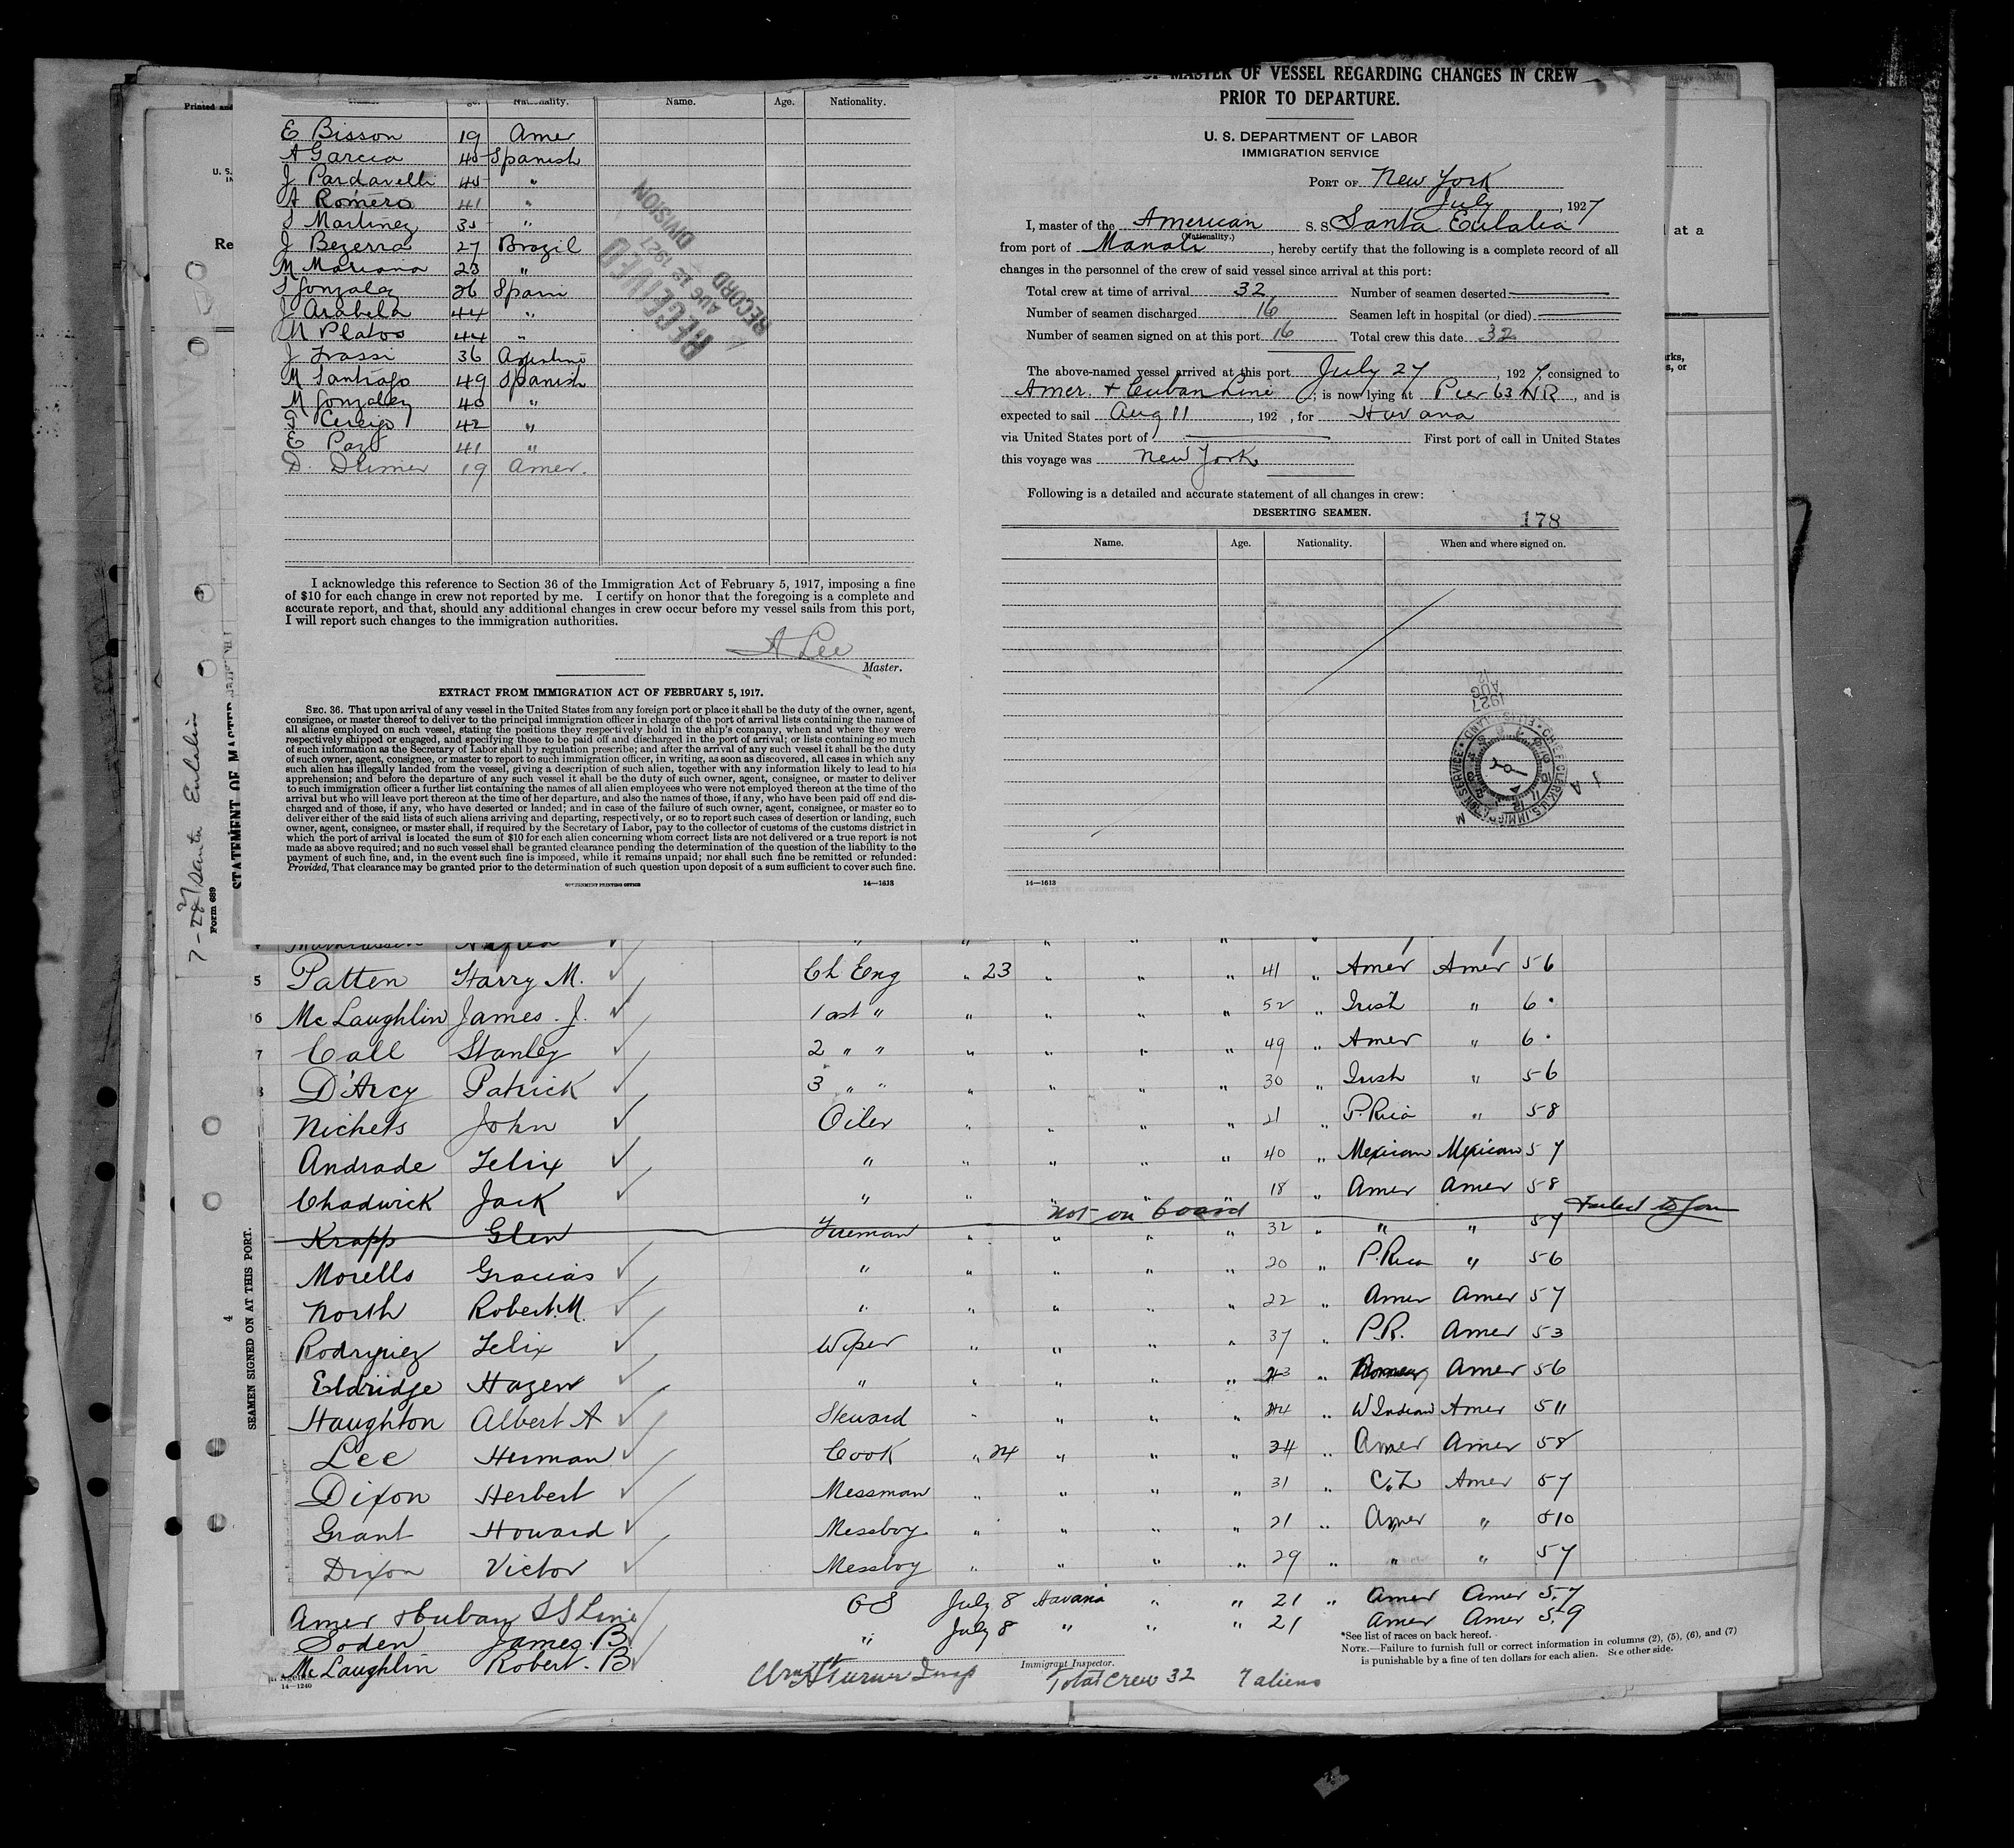 Name. Age. Nationality. Name. Age. Nationality.
E Bisson 19 Amer
A Garcia 45 Spanish
J Pardavelli 45 "
A Romero 41 "
S Martinez 35 "
J Bezerra 27 Brazil
M Mariana 23 "
S Gonzalez 26 Spain
J Arabela 44 "
M Platos 44 "
J Frassi 36 Argentine
M Santiago 49 Spanish
M Gonzalez 40 "
42 "
E Paz 41 "
D. 19 Amer.
RECEIVED
AUG 12 1927
RECORD DIVISION
I acknowledge this reference to Section 36 of the Immigration Act of February 5, 1917, imposing a fine
of $10 for each change in crew not reported by me. I certify on honor that the foregoing is a complete and
accurate report, and that, should any additional changes in crew occur before my vessel sails from this port,
I will report such changes to the immigration authorities.
A Lee
Master.
EXTRACT FROM IMMIGRATION ACT OF FEBRUARY 5, 1917.
SEC. 36. That upon arrival of any vessel in the United States from any foreign port or place it shall be the duty of the owner, agent,
consignee, or master thereof to deliver to the principal immigration officer in charge of the port of arrival lists containing the names of
all aliens employed on such vessel, stating the positions they respectively hold in the ship's company, when and where they were
respectively shipped or engaged, and specifying those to be paid off and discharged in the port of arrival; or lists containing so much
of such information as the Secretary of Labor shall by regulation prescribe; and after the arrival of any such vessel it shall be the duty
of such owner, agent, consignee, or master to report to such immigration officer, in writing, as soon as discovered, all cases in which any
such alien has illegally landed from the vessel, giving a description of such alien, together with any information likely to lead to his
apprehension; and before the departure of any such vessel it shall be the duty of such owner, agent, consignee, or master to deliver
to such immigration officer a further list containing the names of all alien employees who were not employed thereon at the time of the
arrival but who will leave port thereon at the time of her departure, and also the names of those, if any, who have been paid off and dis-
charged and of those, if any, who have deserted or landed; and in case of the failure of such owner, agent, consignee, or master so to
deliver either of the said lists of such aliens arriving and departing, respectively, or so to report such cases of desertion or landing, such
owner, agent, consignee, or master shall, if required by the Secretary of Labor, pay to the collector of customs of the customs district in
which the port of arrival is located the sum of $10 for each alien concerning whom correct lists are not delivered or a true report is not
made as above required; and no such vessel shall be granted clearance pending the determination of the question of the liability to the
payment of such fine, and, in the event such fine is imposed, while it remains unpaid; nor shall such fine be remitted or refunded:
Provided, That clearance may be granted prior to the determination of such question upon deposit of a sum sufficient to cover such fine.
GOVERNMENT PRINTING OFFICE 14—1613
MASTER OF VESSEL REGARDING CHANGES IN CREW
PRIOR TO DEPARTURE.
U. S. DEPARTMENT OF LABOR
IMMIGRATION SERVICE
PORT OF New York
July, 1927
I, master of the American S. S. Santa Eulalia
(Nationality.)
from port of Manati, hereby certify that the following is a complete record of all
changes in the personnel of the crew of said vessel since arrival at this port:
Total crew at time of arrival 32 Number of seamen deserted
Number of seamen discharged 16 Seamen left in hospital (or died)
Number of seamen signed on at this port 16 Total crew this date 32
The above-named vessel arrived at this port July 27, 1927, consigned to
Amer. + Cuban Line; is now lying at Pier 63 NR, and is
expected to sail Aug 11, 192 , for Havana
via United States port of First port of call in United States
this voyage was New York
Following is a detailed and accurate statement of all changes in crew:
DESERTING SEAMEN. 178
Name. Age. Nationality. When and where signed on.
1927
AUG
12
14—1613
7-27 Santa Eulalia
Form 689
STATEMENT OF MASTER
SEAMEN SIGNED ON AT THIS PORT.
4
5 Patten Harry M. Ch Eng " 23 " " " 41 " Amer Amer 5 6
6 McLaughlin James. J. 1 ast " " " " " 52 " Irish " 6 0
7 Call Stanley 2 " " " " " " 49 " Amer " 6 0
8 D'Arcy Patrick 3 " " " " " " 30 " Irish " 5 6
Nichels John Oiler " " " " 21 " P. Rico " 5 8
Andrade Felix " " " " " 40 " Mexican Mexican 5 7
Chadwick Jack " " " " " 18 " Amer Amer 5 8
not on board Failed to Join
Krapp Glen Fireman " " " " 32 " " " 5 7
Morells Gracias " " " " " 20 " P. Rica " 5 6
North Robert. M. " " " " " 22 " Amer Amer 5 7
Rodriguez Felix Wiper " " " " 37 " P.R. Amer 5 3
Eldridge Hazen " " " " " 23 " Amer 5 6
Haughton Albert A Steward " " " " 44 " W Indian Amer 5 11
Lee Herman Cook " 24 " " " 34 " Amer Amer 5 8
Dixon Herbert Messman " " " " 31 " C.Z Amer 5 7
Grant Howard Messboy " " " " 21 " Amer " 5 10
Dixon Victor Messboy " " " " 29 " " " 5 7
Amer + Cuban S S Line OS July 8 Havana " " 21 " Amer Amer 5.7
Soden James. B. " July 8 " " " 21 Amer Amer 5.9
McLaughlin Robert. B
*See list of races on back hereof.
NOTE.—Failure to furnish full or correct information in columns (2), (5), (6), and (7)
is punishable by a fine of ten dollars for each alien. See other side.
Immigrant Inspector.
14—1240
Wm H Turner Insp Total Crew 32 7 aliens